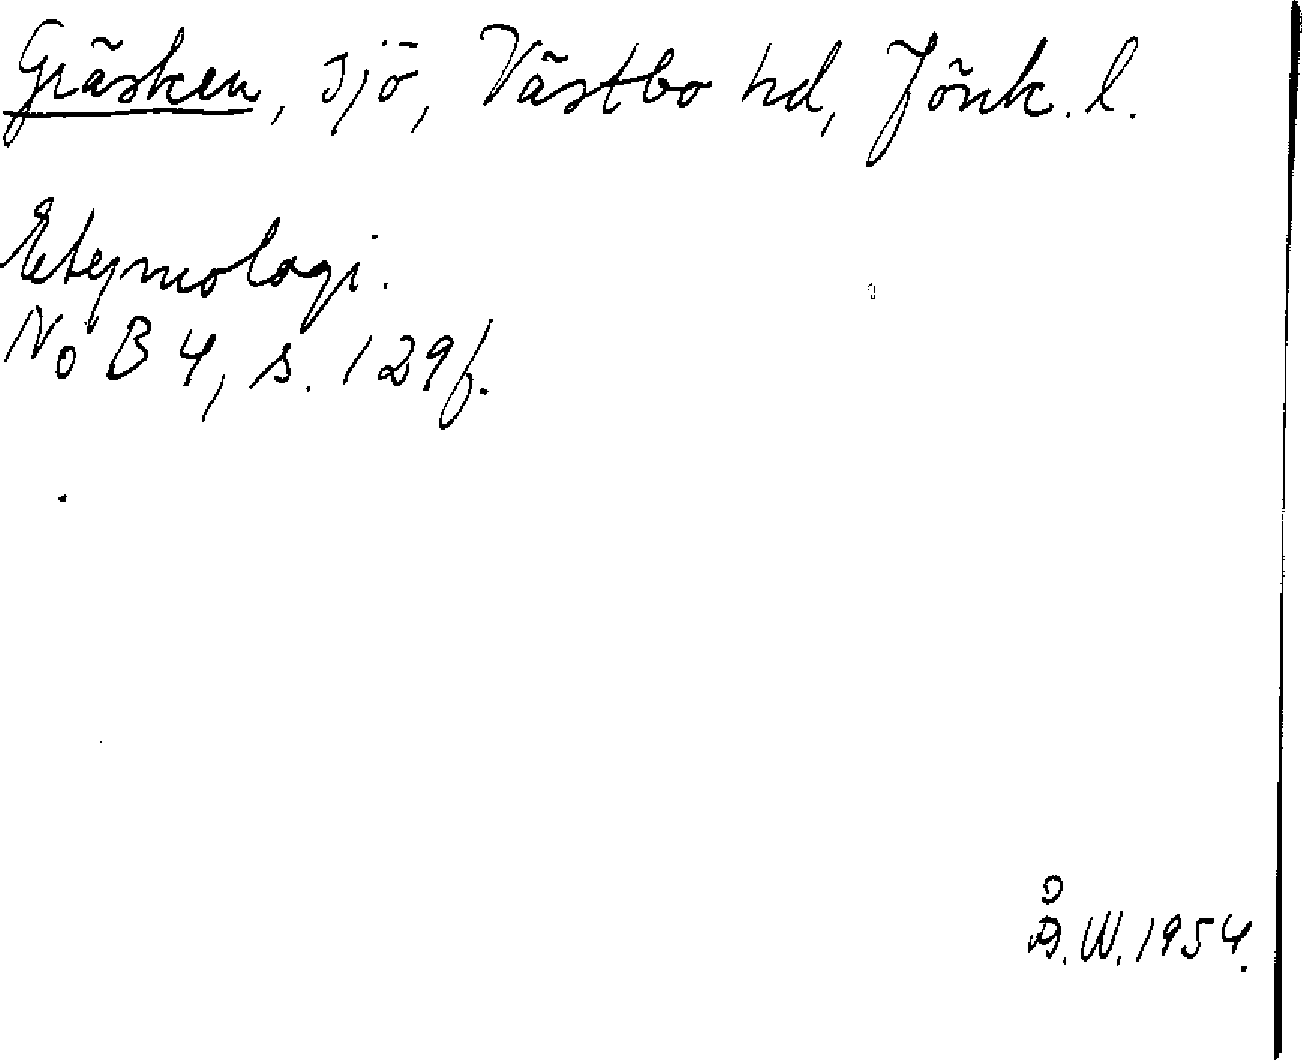 Gräsken, sjö, Västbo hd, Jönk. l.
Etymologi.
NoB 4, s. 129f.
Å.W. 1954.